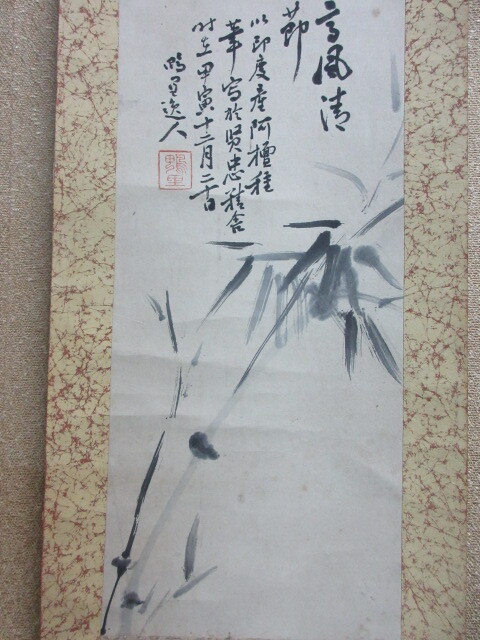 高風清
節
以印度産阿檀種
筆寫於賢忠精舎
时在甲寅十二月二十日
鴨里逸人
鴨里